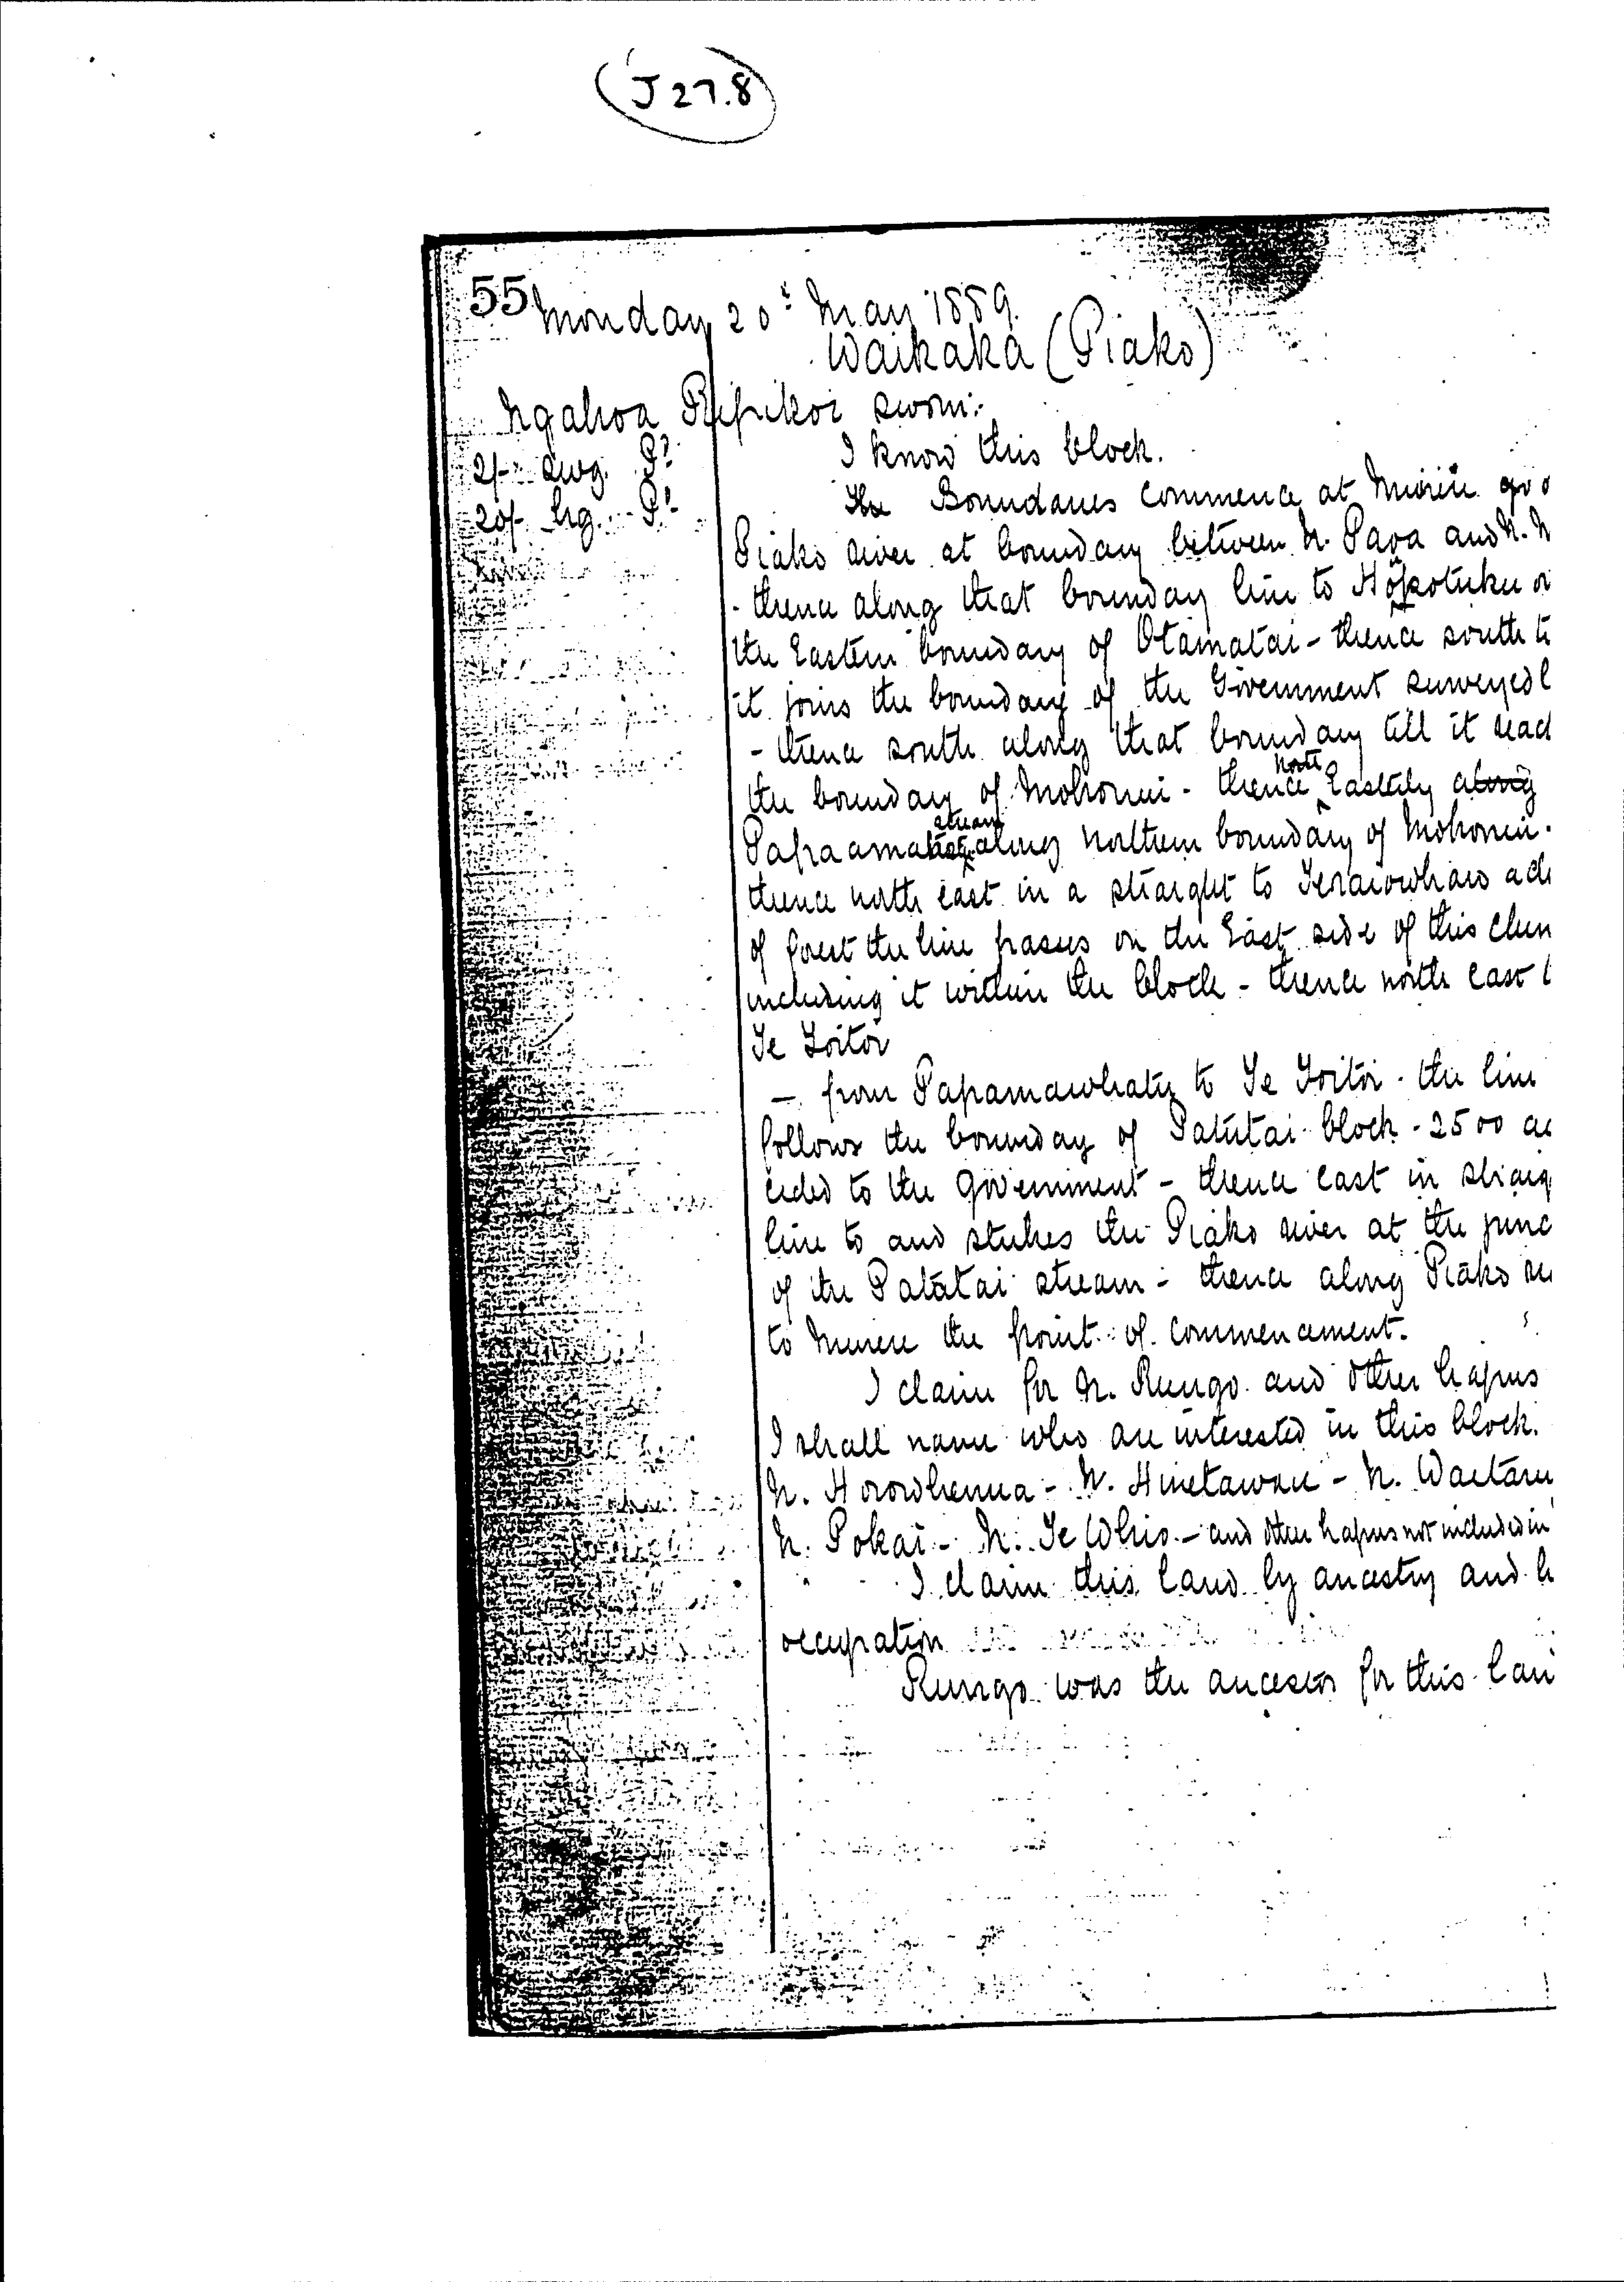 J 27.8
55 Monday 20th May 1889.
Waikaka (Piako)
Ngahoa Pipikoi sworn:-
I know this block.
2/- swg. Pd
20/- hg. Pd
The Boundaries commence at
Piako river at boundary between N. Paoa and N. N
- thence along that boundary line to Hopotuku
the Eastern boundary of Otamatai - thence south
it joins the boundary of the Government surveyed
- thence south along that boundary till it
the boundary of Mohonui - thence North Easterly along
stream along northern boundary of Mohonui -
thence north east in a straight to
of forest the line passes on the East side of this
including it within the block - thence north east
Te Toitoi
- from Papamawhatu to Te Toitoi - the line
follows the boundary of Patutai block - 2500
ceded to the Government - thence east in
line to and strikes the Piako river at the
of the Patatai stream - thence along Piako
to the point of commencement.
I claim for N. Rungo and other hapus
I shall name who are interested in this block.
N. Horowhenua - N. - N.
N. Pokai - N. Te Whio - and other hapus not included in
I claim this land by ancestry and
occupation
Rungo was the ancestor for this